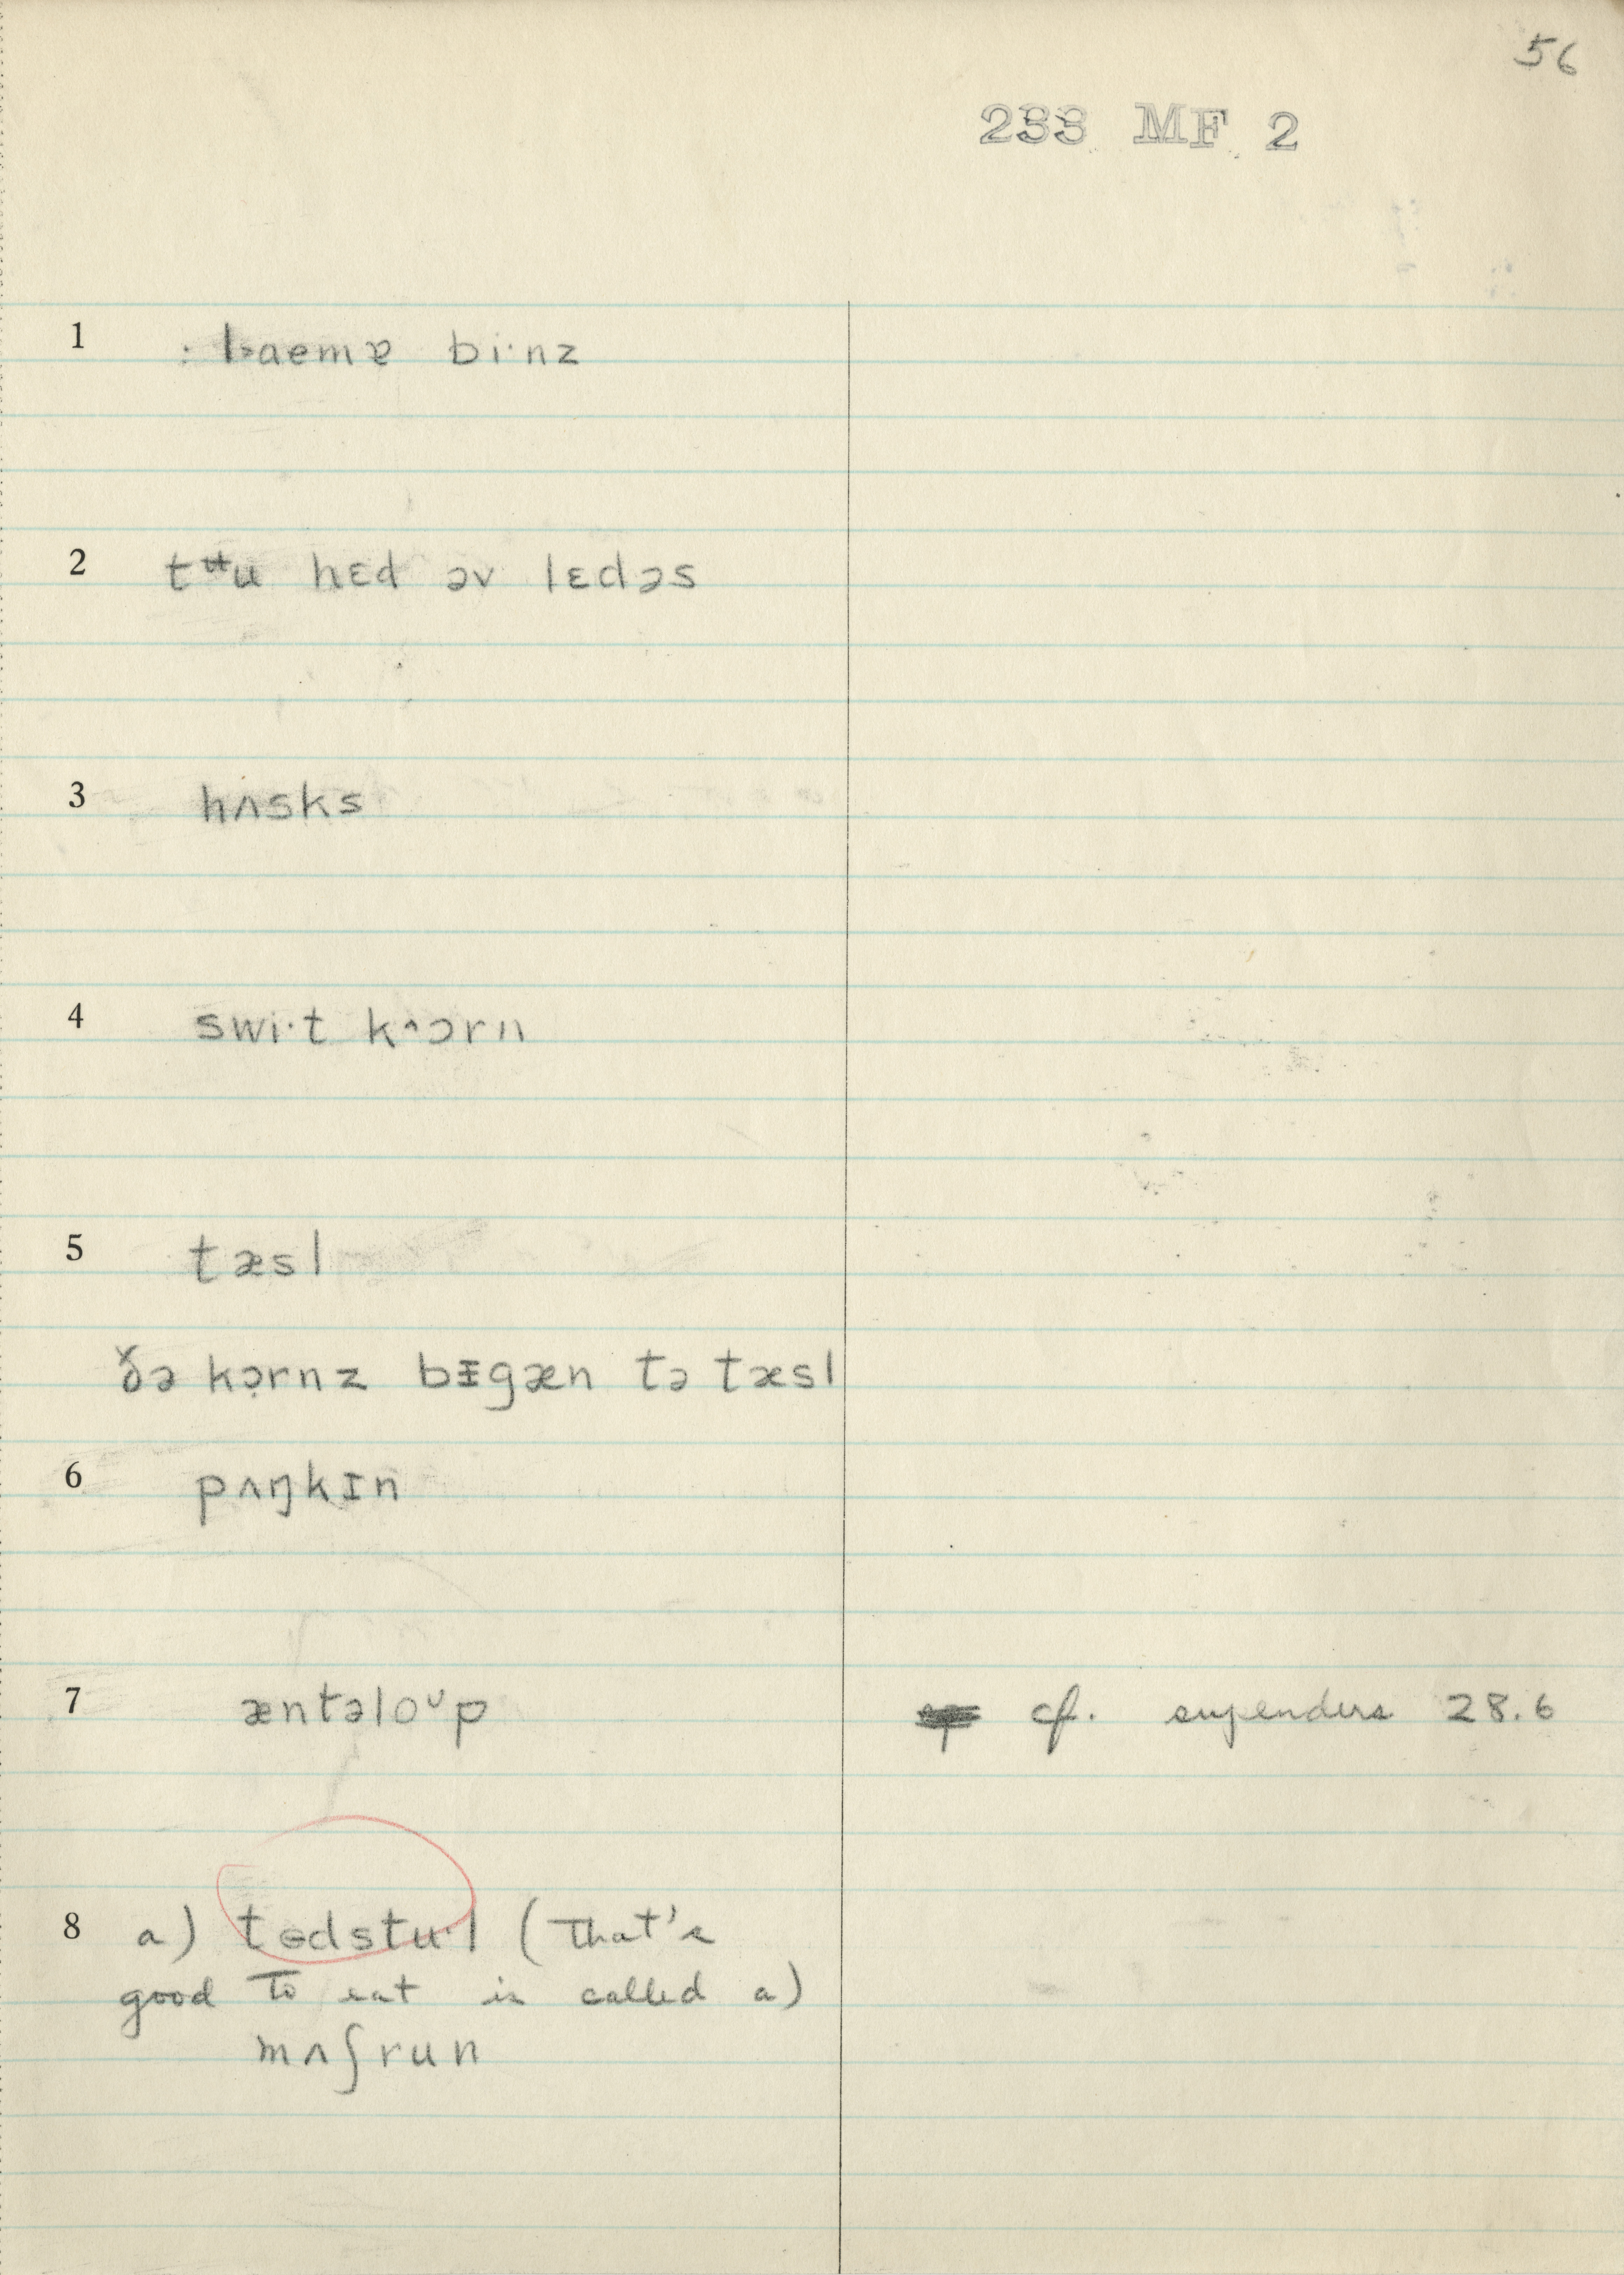 56
233 MF 2
1 : laemɐ bi·nz
2 tʉu hɛd əv lɛdəs
3 hʌsks
4 swi·t k^ɔrn
5 tæsl
ðə kɔ̣rnz bɪgæn tə tæsl
6 pʌŋkɪn
7 æntəloᴜp cf. 28.6
8 a) tɵdstu·l (That's
good to eat is called a)
mʌʃrun